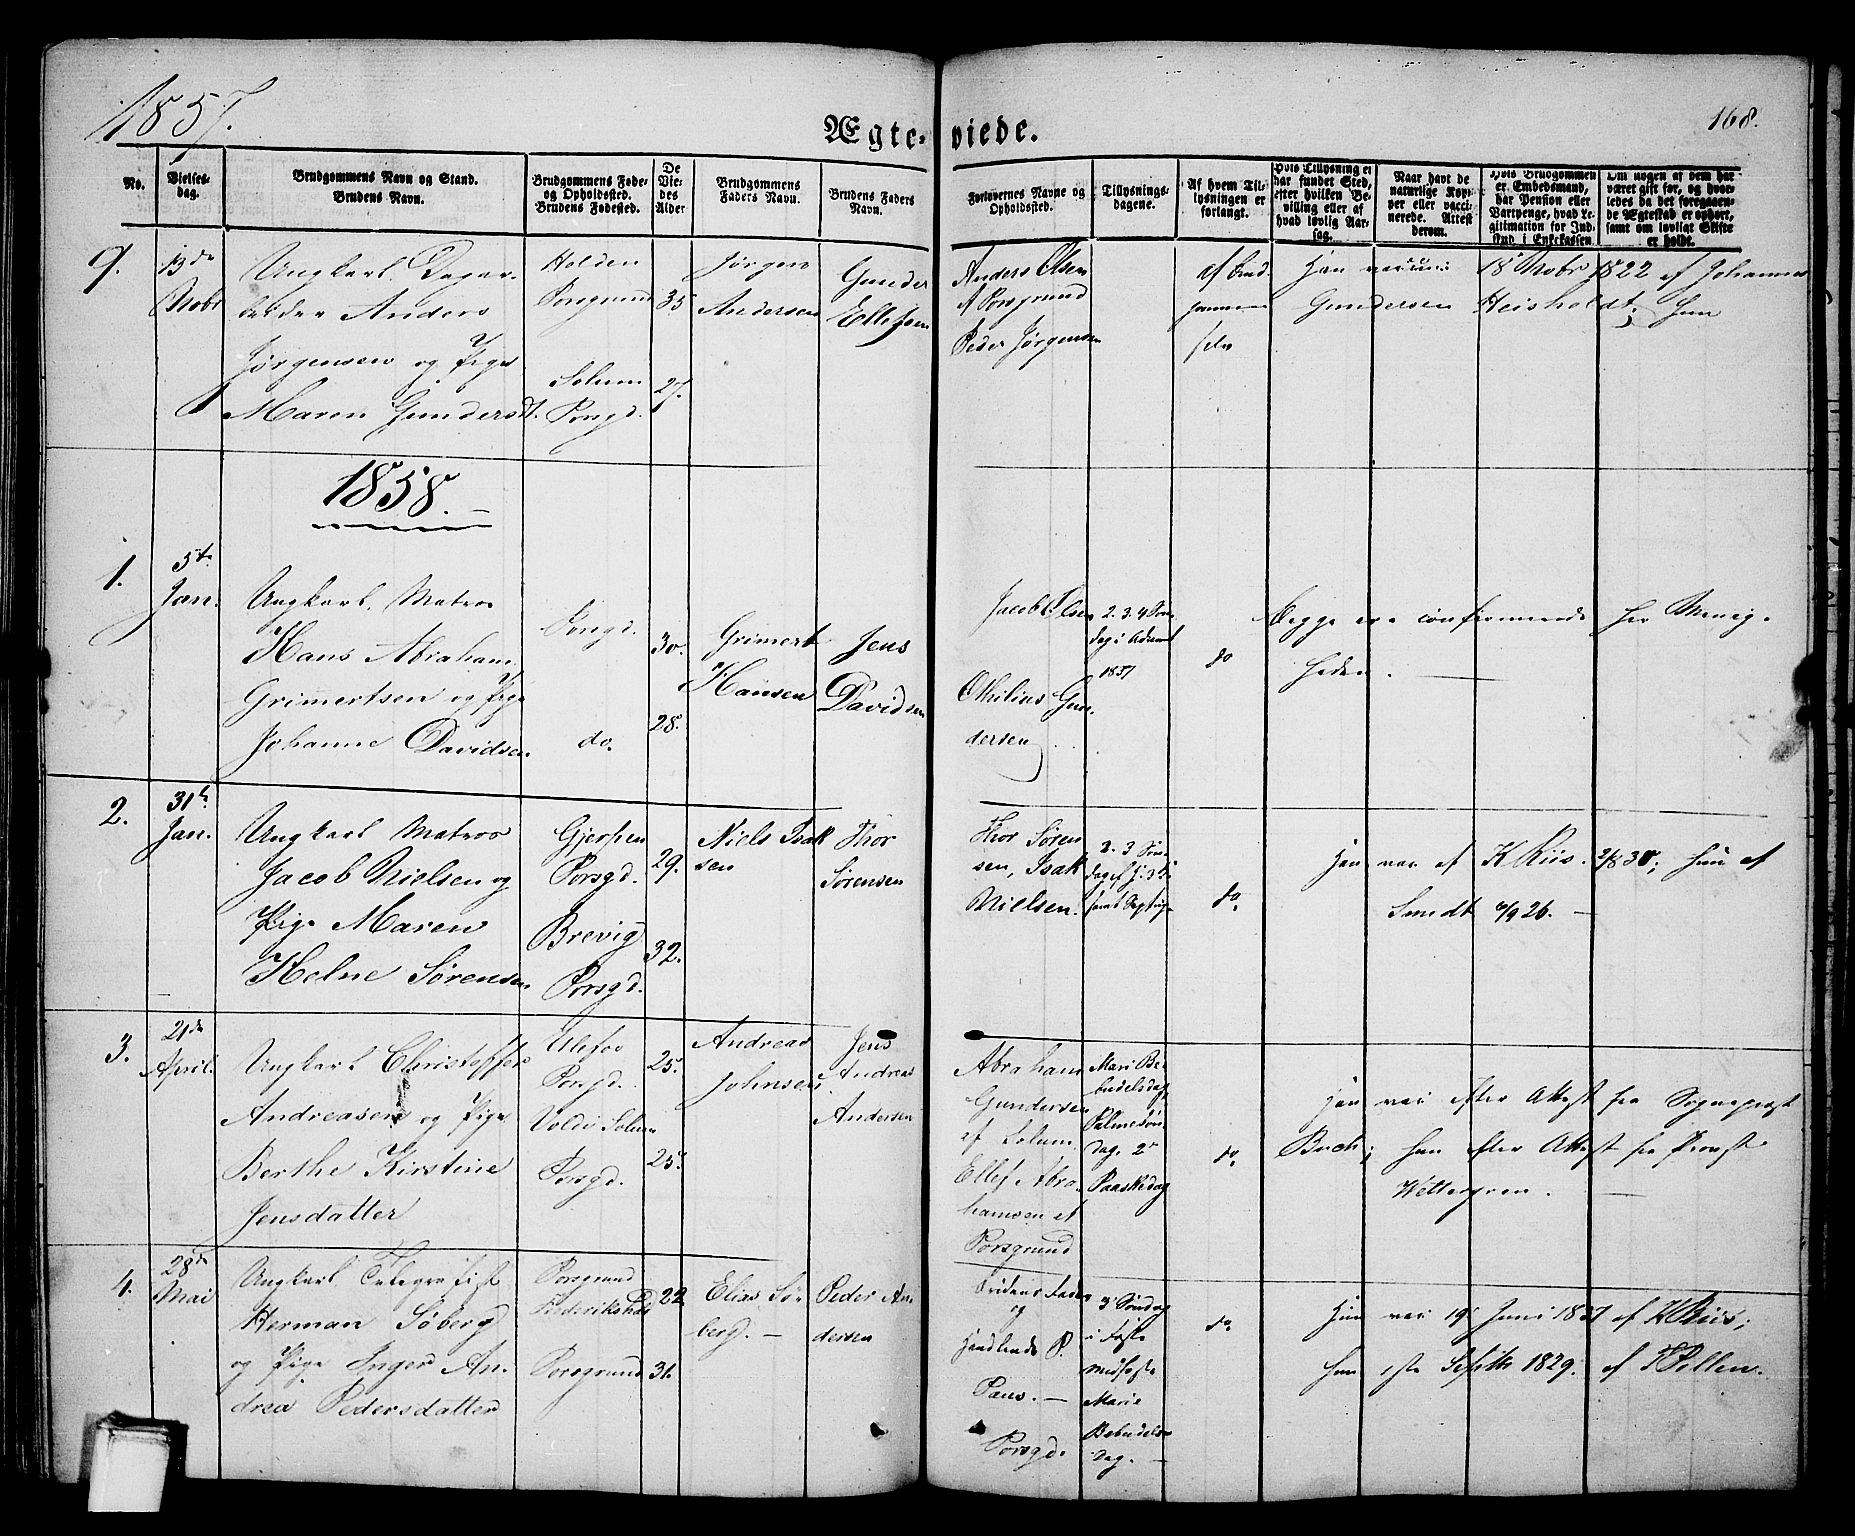 1857.
168.
Ægte- viede.
No.
Vielses-
dag.
Brudgommens Navn og Stand.
Brudens Navn.
Brudgommens Føde-
og Opholdssted.
Brudens Fødested.
De
Vie-
des
Alder
Brudgommens
Faders Navn.
Brudens Faders
Navn.
Forlovernes Navne og
Opholdssted.
Tillysnings-
dagene.
Af hvem Til-
lysningen er
forlangt.
Hvis Tillysning ei
har fundet Sted,
efter hvilken Be-
villing eller af
hvad lovlig Aar-
sag.
Naar havt de
naturlige Kop-
per eller vacci-
nerede. Attest
derom.
Hvis Brudgommen
er Embedsmand,
har Pension eller
Vartpenge, hvad Le-
gitimation for Ind-
skud i Enkekassen.
Om nogen af dem har
været gift før, og hvor-
ledes da det foregaaen-
de Ægteskab er ophørt,
samt om lovligt Skifte
er holdt.
9.
13de
Novbr
Ungkarl Dagar-
beider Anders
Jørgensen og Pige
Maren Gundersdt.
Holden
Porsgrund
Solum
Porsgd.
35
27.
Jørgen
Andersen
Gunder
Ellefsen
Anders Olsen
af Porsgrund
Peder Jørgensen
af Brud-
gommen
selv
Han vac: 18 Novbr 1822 af Johannes
Gundersen Heisholdt; hun
1858.
1.
5te
Jan.
Ungkarl. Matros
Hans Abraham
Grimertsen og Pige
Johanne Davidsen
Porsgd.
do.
30.
28.
Grimert
Hansen
Jens
Davidsen
Jacob Olsen
Othilius Gun-
dersen
2. 3. 4 Søn-
dag i Advent
1857
do
Begge ere confirmerede her Menig-
heden.
2.
31te
Jan.
Ungkarl Matros
Jacob Nielsen og
Pige Maren
Helne Sørensen
Gjerpen
Porsgd.
Brevig
Porsgd.
29.
32.
Niels Isak
sen
Thor
Sørensen
Thor Søren
sen, Isak
Nielsen.
do.
Han vac af K Riis. 2/8 30; hun af
Smidt 6/9 26.
3.
21de
April.
Ungkarl Christoffer
Andreasen og Pige
Berthe Kirstine
Jensdatter
Ulefos
Porsgd.
Vold i Solum
Porsgd.
25.
25.
Andreas
Johnsen
Jens
Andreas
Andersen
Abraham
Gundersen
af Solum
Ellef Abra-
hamsen af
Porsgrund
Mari Be-
budelsdag
Palmesøn-
dag. 2n
Paaskedag
do.
Han vac efter Attest fra Sognepræst
Buch; hun efter Attest fra Provst
Wettergren.
4.
28de
Mai
Ungkarl Telegrafist
Herman Söberg
og Pige Inger An-
drea Pedersdatter
Porsgrund
Frederikshald
Porsgrund
22
31.
Elias Sö-
berg.
Peder An
dersen
Brudens Fader
og
Handlende P.
Paus.
Porsgd.
3 Søndag
i Faste
Midfaste
Marie
Bebudels-
dag.
do.
Han vac 19 Juni 1837 af K Riis;
hun 1ste Septbr 1829. af